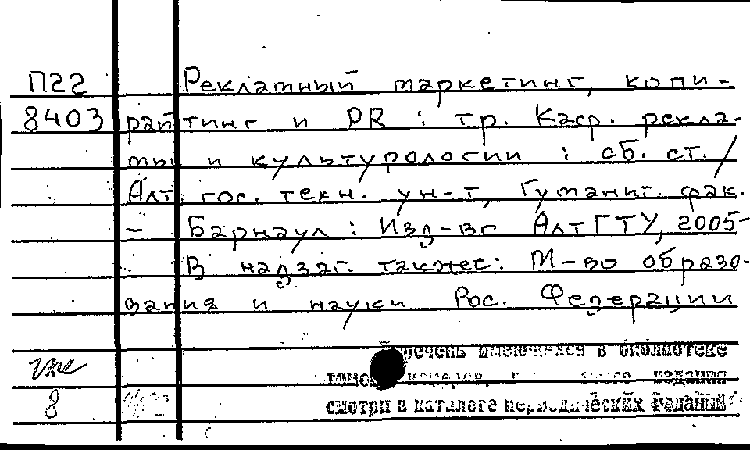 П22 Рекламный маркетинг, копи-
8403 райтинг и PR : тр. Каф. рекла-
мы и культурологии : сб. ст. /
Алт. гос. техн. ун-т, Гуманит. фак.
- Барнаул : Изд-во АлтГТУ, 2005-
В надзаг. также: М-во образо-
вания и науки Рос. Федерации
имеющихся в библиотеке
издания
8 смотри в каталоге периодических изданий